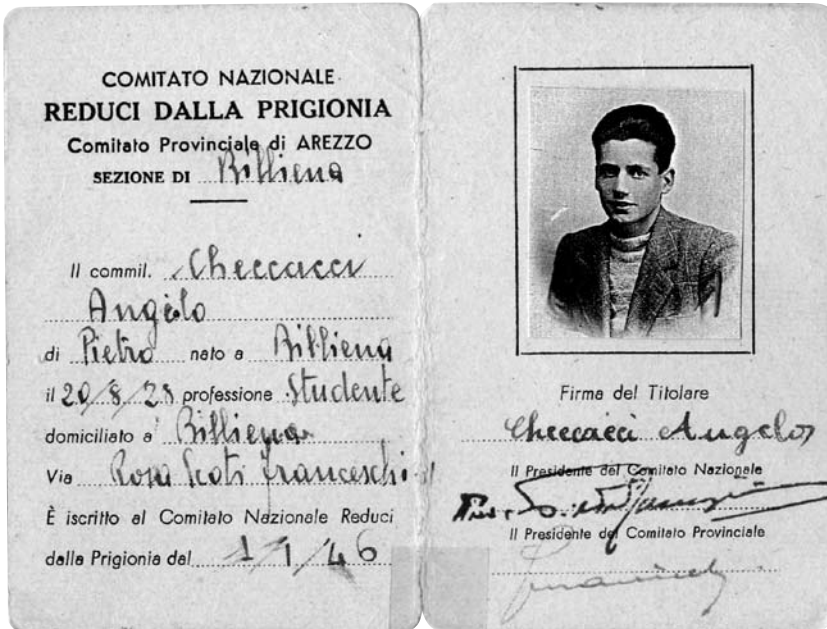 COMITATO NAZIONALE
REDUCI DALLA PRIGIONIA
Comitato Provinciale di AREZZO
SEZIONE DI Bibbiena
Il commil. Checcacci
Angelo
di Pietro nato a Bibbiena
il professione Studente
domiciliato a Bibbiena
Via Rosa Scoti Franceschi
È iscritto al Comitato Nazionale Reduci
dalla Prigionia dal 1/1/46
Firma del Titolare
Checcacci Angelo
Il Presidente del Comitato Nazionale
Il Presidente del Comitato Provinciale